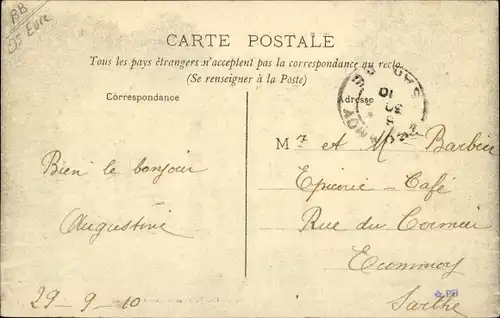 BB
Dt Eure
CARTE POSTALE
Tous les pays étrangers n'acceptent pas la correspondance au recto
(Se renseigner à la Poste)
Correspondance
Adresse
Mr et Mme Barbier
Epicerie - Café
Rue du Cormier
Ecommoy
Sarthe
Bien le bonjour
Augustine
29-9-10